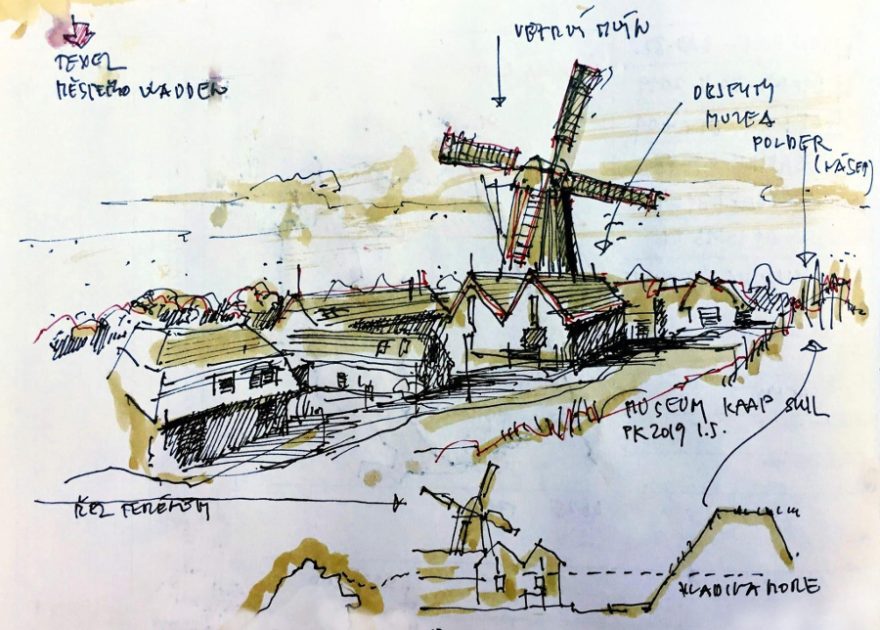 TEXEL
MĚSTEČKO WADDEN
VĚTRNÝ MLÝN
OBJEKTY
MUZEA
POLDER
(NÁSEP)
MUSEUM KAAP SKIL
PK 2019 1.5.
ŘEZ TERÉNEM
HLADINA MOŘE